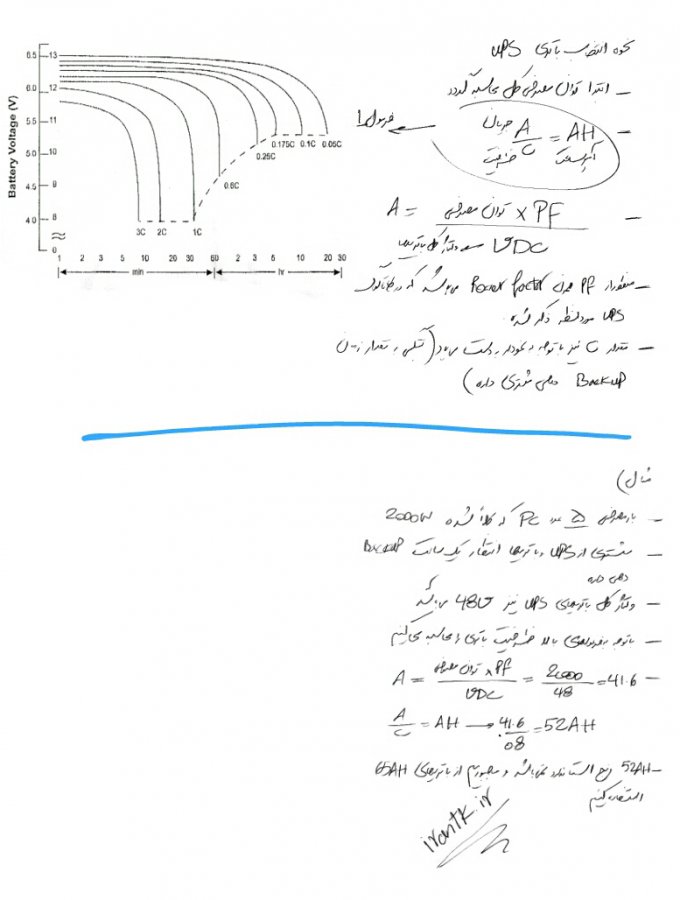 نحوه انتخاب باتری UPS
– ابتدا توان مصرفی کل محاسبه گردد
– AH = A/C
جریان
ظرفیت
فرمول 1
– A = توان مصرفی × PF / VDC
ولتاژ کل باتریها
– مقدار PF همان Power factor میباشد که در کاتالوگ
UPS مورد نظر ذکر شده
– مقدار C نیز با توجه به نمودار بدست میاید (بستگی به مقدار زمان
Backup دهی مشتری دارد)
Battery Voltage (V)
6.5 13
6.0 12
5.5 11
5.0 10
4.5 9
4.0 8
0 0
3C 2C 1C 0.6C 0.25C 0.175C 0.1C 0.05C
1 2 3 5 10 20 30 60 2 3 5 10 20 30
min hr
مثال)
– بار مصرفی 5 عدد PC که کلا شده 2000W
– مشتری از UPS و باتریها انتظار یک ساعت Backup
دهی دارد
– ولتاژ کل باتریهای UPS نیز 48V میباشد
– با توجه به فرمولهای بالا ظرفیت باتری را محاسبه میکنیم
– A = توان مصرفی × PF / VDC = 2000 / 48 = 41.6
A/C = AH → 41.6 / 0.8 = 52AH
– 52AH رنج استاندارد نمیباشد و مجبوریم از باتریهای 65AH
استفاده کنیم
irantk.ir